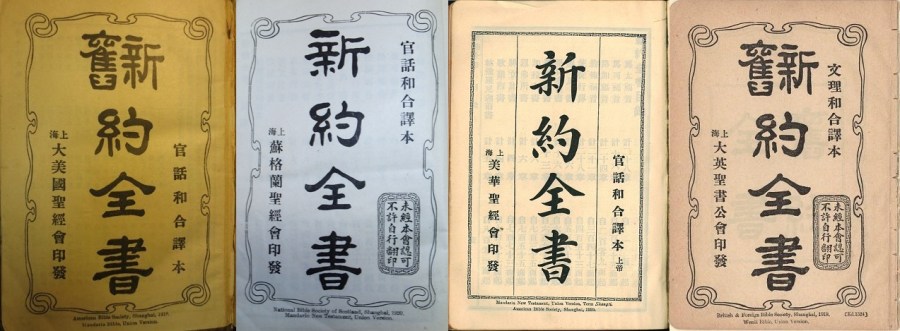 官話和合譯本
新舊約全書
上海大美國聖經會印發
American Bible Society, Shanghai,
Mandarin Bible, Union Version.
官話和合譯本
新約全書
未經本會認可
不許自行翻印
上海蘇格蘭聖經會印發
National Bible Society of Scotland, Shanghai,
Mandarin New Testament, Union Version.
官話和合譯本 上帝
新約全書
上海美華聖經會印發
Mandarin New Testament, Union Version, Term Shangti.
American Bible Society, Shanghai,
文理和合譯本
新舊約全書
未經本會認可
不許自行翻印
上海大英聖書公會印發
British & Foreign Bible Society, Shanghai,
Wenli Bible, Union Version.